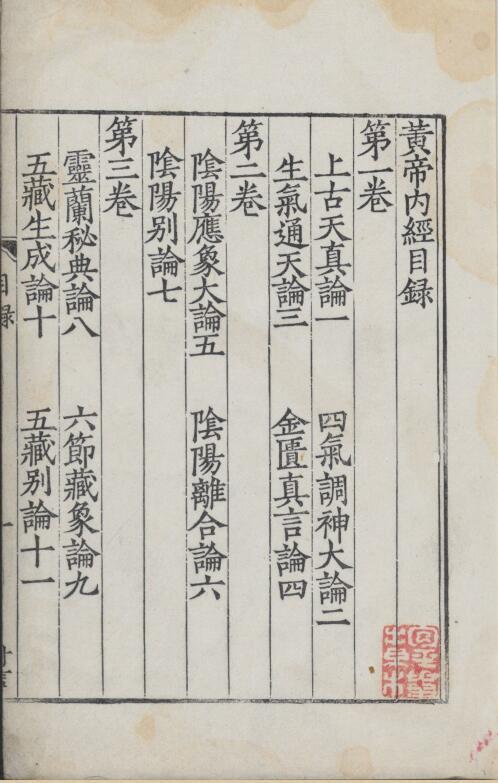 黃帝内經目録
第一卷
上古天真論一　四氣調神大論二
生氣通天論三　金匱真言論四
第二卷
陰陽應象大論五　陰陽離合論六
陰陽别論七
第三卷
靈蘭秘典論八　六節藏象論九
五藏生成論十　五藏别論十一
目録　一